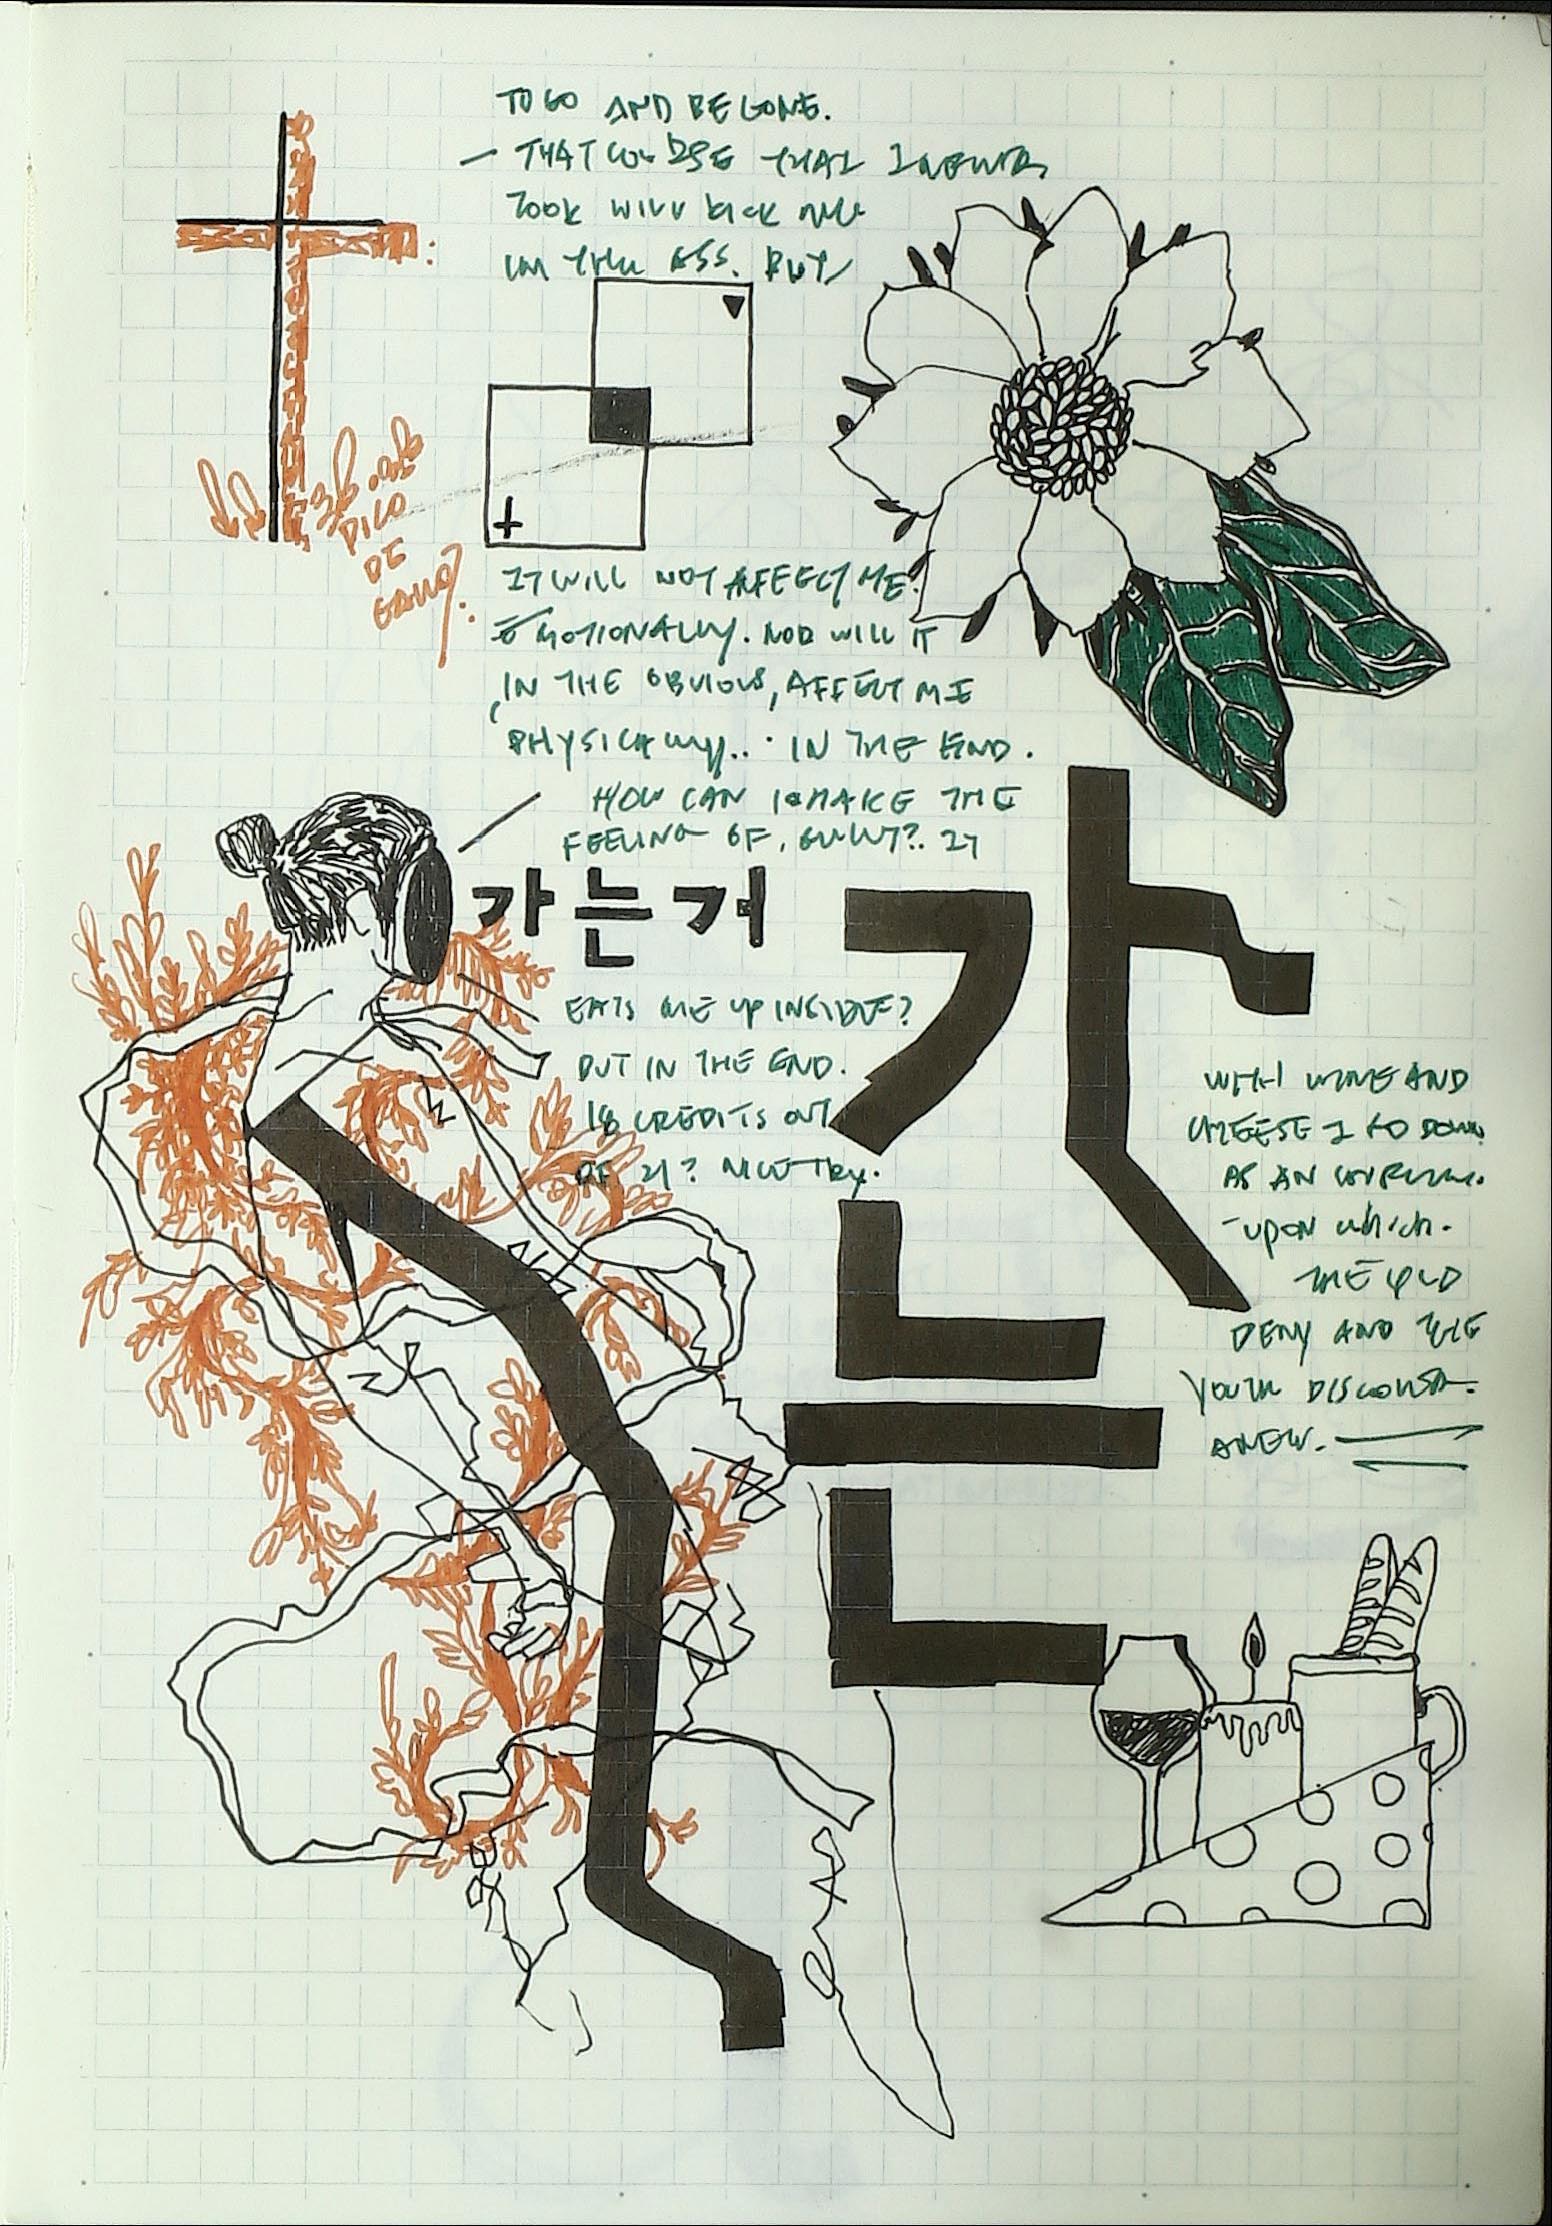 TO GO AND BE GONE.
— THAT COURSE THAT I NEVER
TOOK WILL KICK ME
IN THE ASS. BUT
PICO
DE
GALLO
IT WILL NOT AFFECT ME
EMOTIONALLY. NOR WILL IT
IN THE OBVIOUS, AFFECT ME
PHYSICALLY... IN THE END.
HOW CAN I MAKE THE
FEELING OF, GUILT?. IT
가는거
EATS ME UP INSIDE?
BUT IN THE END.
18 CREDITS OUT
OF 21? NICE TRY.
간
는
WITH WINE AND
CHEESE I GO DOWN
AS AN
- UPON WHICH.
THE OLD
DENY AND THE
YOUTH DISCOVER
ANEW.